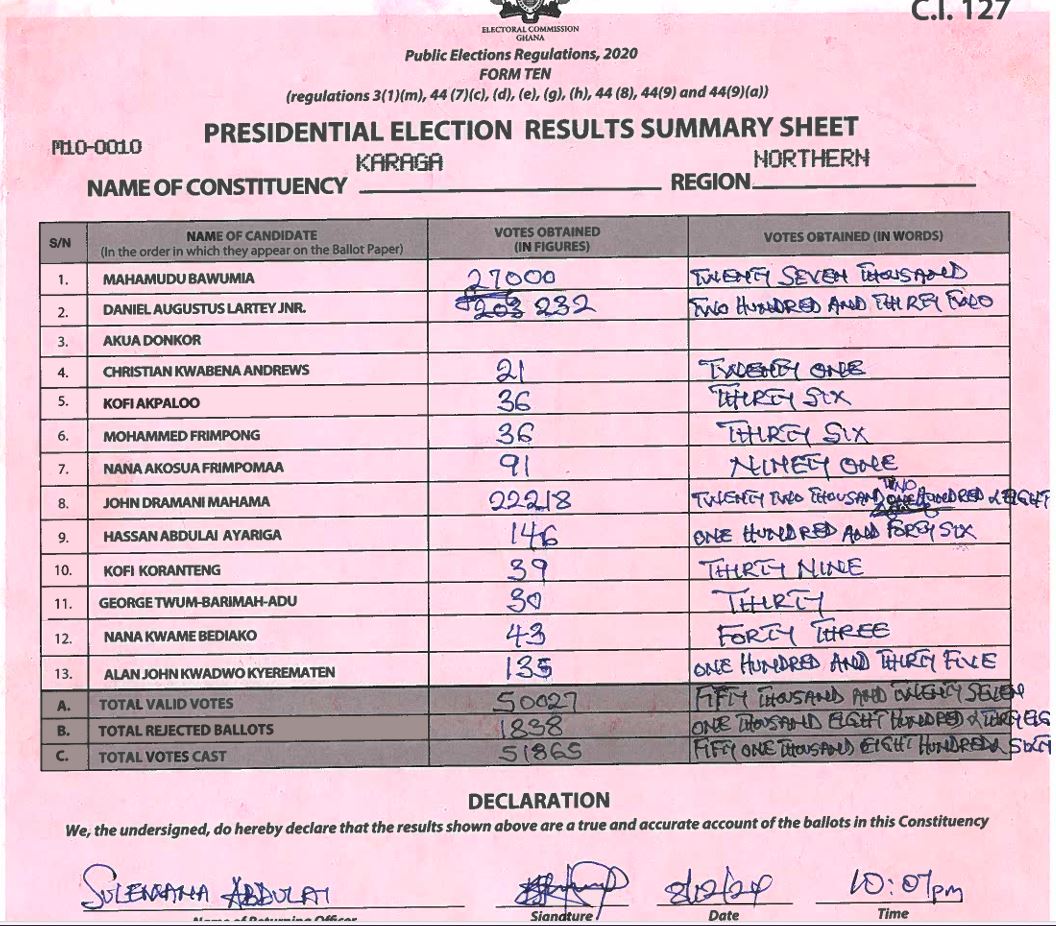 C.I. 127
ELECTORAL COMMISSION
GHANA
Public Elections Regulations, 2020
FORM TEN
(regulations 3(1)(m), 44 (7)(c), (d), (e), (g), (h), 44 (8), 44(9) and 44(9)(a))
PRESIDENTIAL ELECTION RESULTS SUMMARY SHEET
M10-0010
KARAGA NORTHERN
NAME OF CONSTITUENCY REGION
S/N NAME OF CANDIDATE (In the order in which they appear on the Ballot Paper) VOTES OBTAINED (IN FIGURES) VOTES OBTAINED (IN WORDS)
1. MAHAMUDU BAWUMIA 27000 TWENTY SEVEN THOUSAND
2. DANIEL AUGUSTUS LARTEY JNR. 232 TWO HUNDRED AND THIRTY TWO
3. AKUA DONKOR
4. CHRISTIAN KWABENA ANDREWS 21 TWENTY ONE
5. KOFI AKPALOO 36 THIRTY SIX
6. MOHAMMED FRIMPONG 36 THIRTY SIX
7. NANA AKOSUA FRIMPOMAA 91 NINETY ONE
8. JOHN DRAMANI MAHAMA 22218 TWENTY TWO THOUSAND TWO HUNDRED & EIGHT
9. HASSAN ABDULAI AYARIGA 146 ONE HUNDRED AND FORTY SIX
10. KOFI KORANTENG 39 THIRTY NINE
11. GEORGE TWUM-BARIMAH-ADU 30 THIRTY
12. NANA KWAME BEDIAKO 43 FORTY THREE
13. ALAN JOHN KWADWO KYEREMATEN 135 ONE HUNDRED AND THIRTY FIVE
A. TOTAL VALID VOTES 50027 FIFTY THOUSAND AND TWENTY SEVEN
B. TOTAL REJECTED BALLOTS 1838 ONE THOUSAND EIGHT HUNDRED & THIRTY EIG
C. TOTAL VOTES CAST 51865 FIFTY ONE THOUSAND EIGHT HUNDRED & SIXTY
DECLARATION
We, the undersigned, do hereby declare that the results shown above are a true and accurate account of the ballots in this Constituency
SULEMANA ABDULAI 8/12/24 10:07pm
Name of Returning Officer Signature Date Time